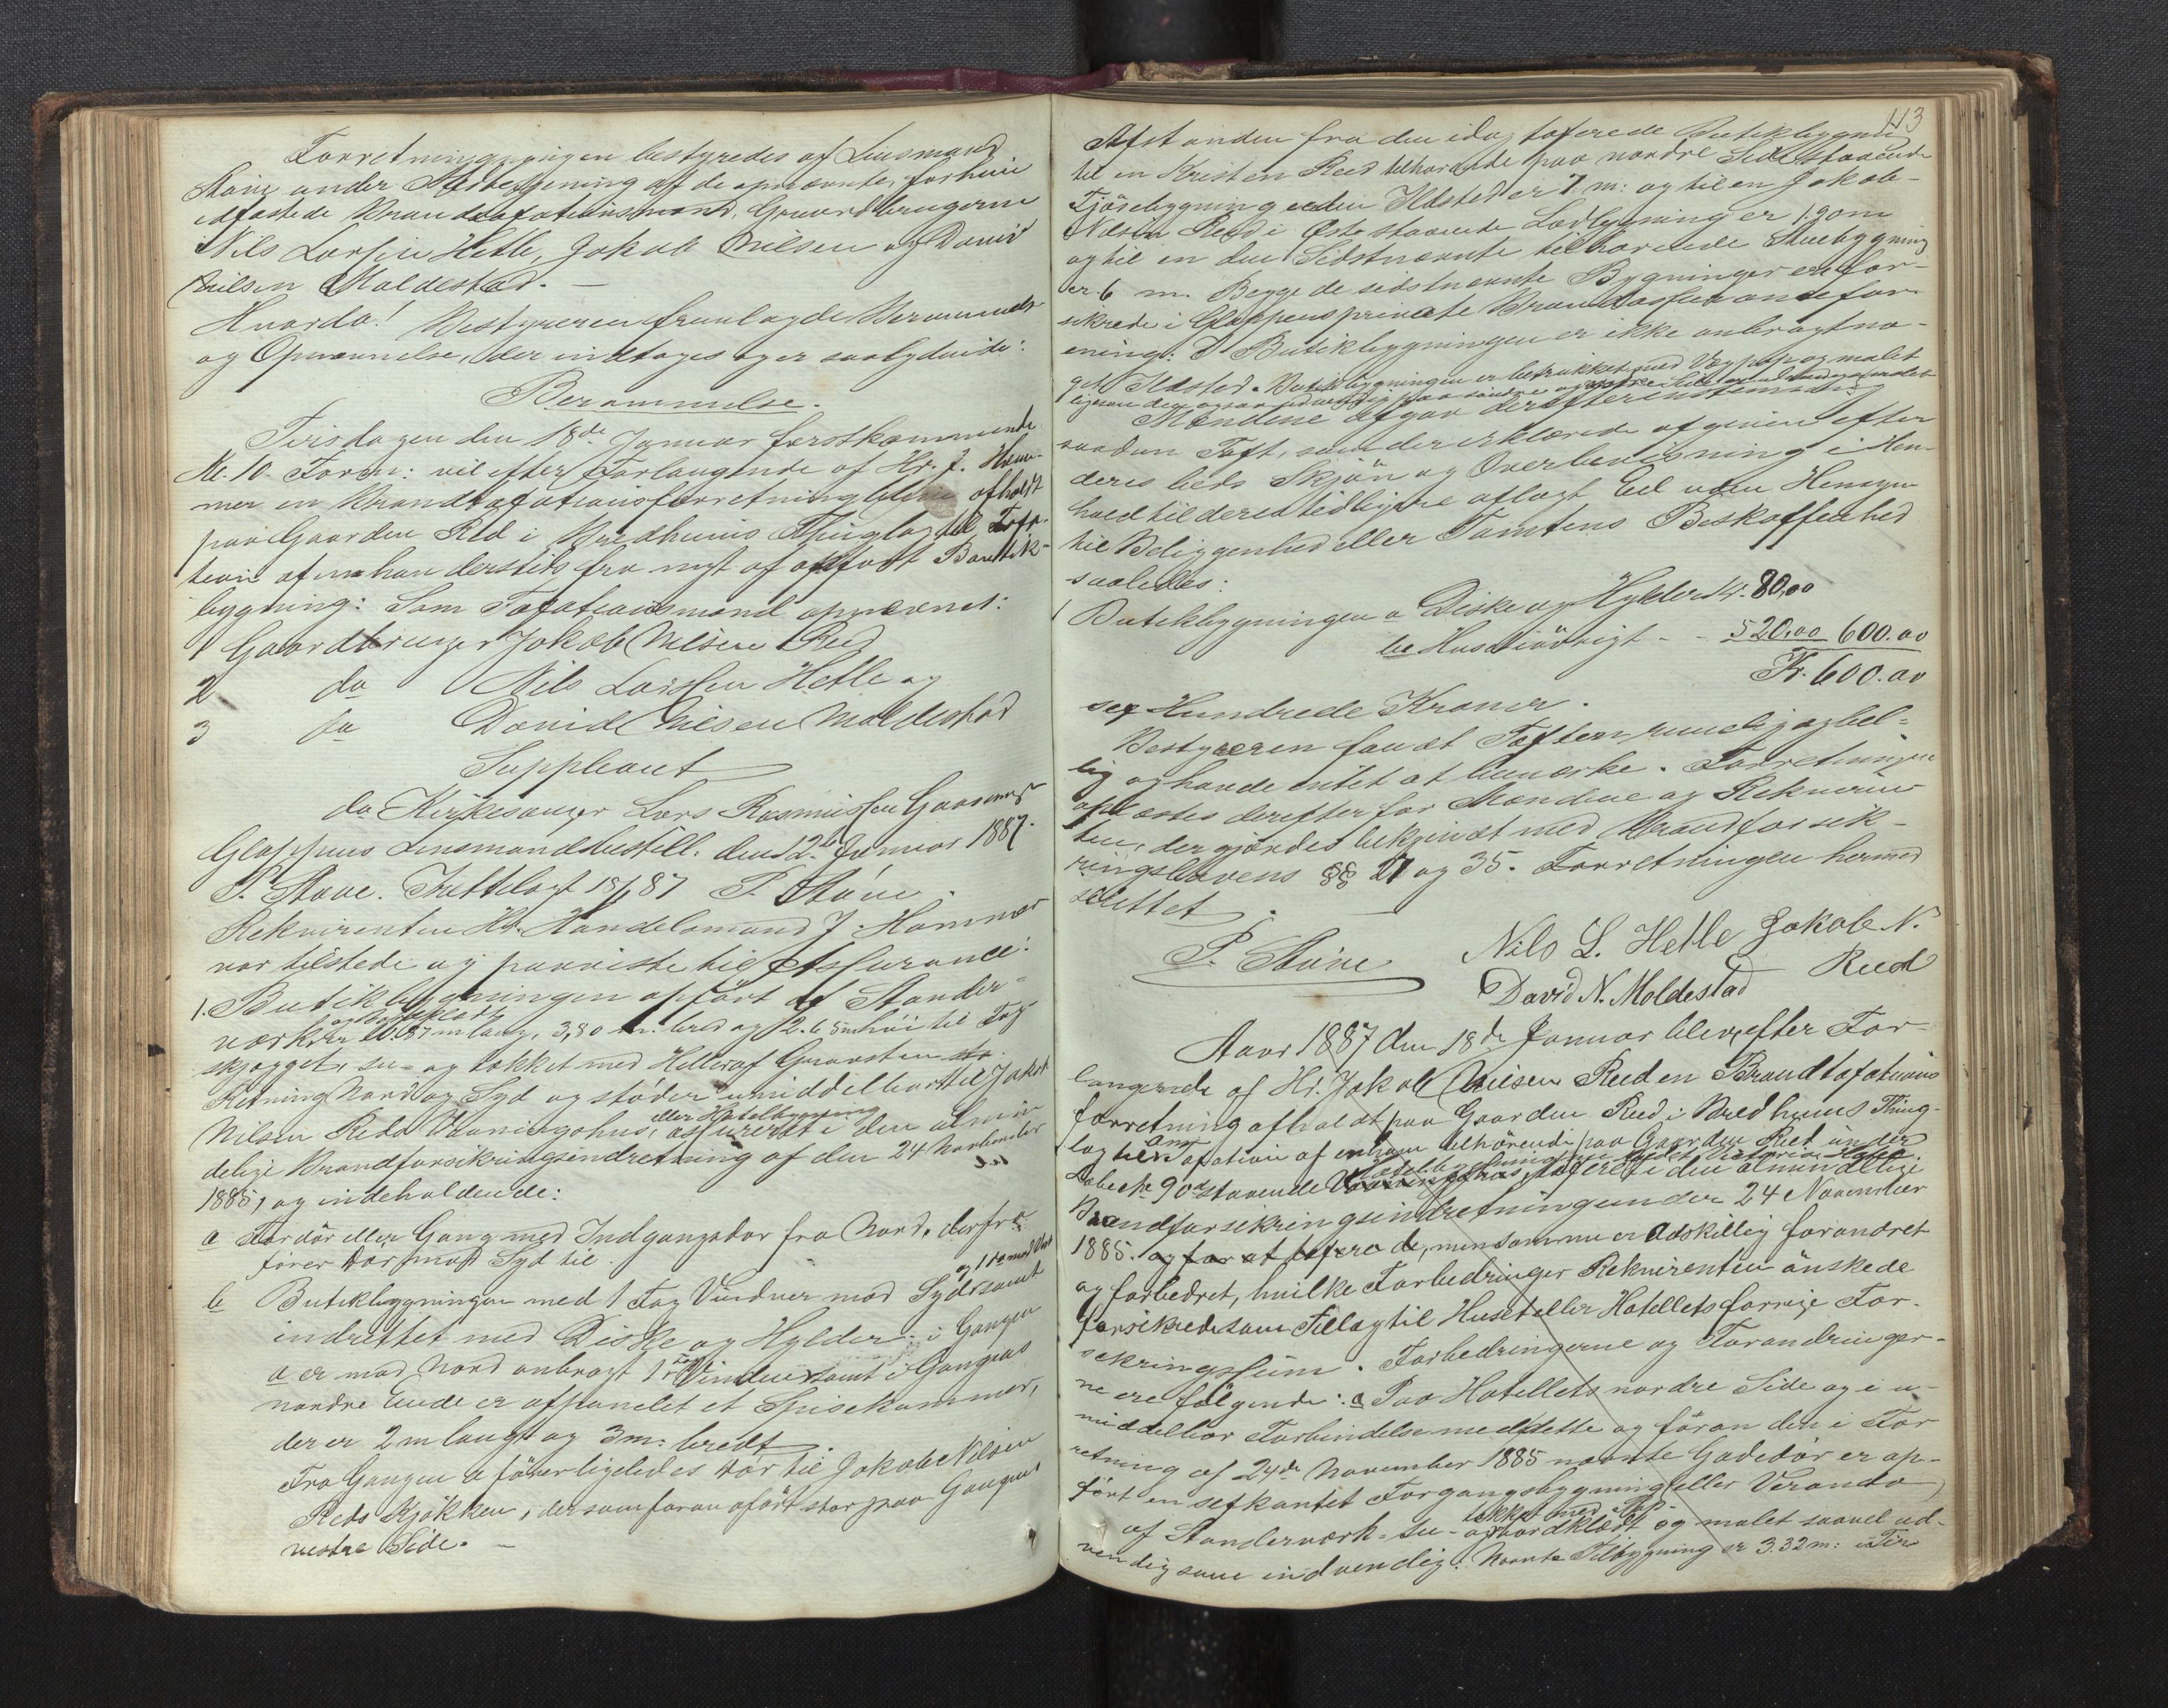 Forretningen bestyredes af Lensmand
Støve under Medbetjening af de opnævnte, forhen
edfæstede Brandtaxationsmænd, Gaardbrugerne
Nils Larsen Hetle, Jakob Nilsen og David
Nilsen Moldestad. —
Hvorda! Bestyreren fremlagde Berammelse
og Opnævnelse, der indtages og er saalydende:
Berammelse.
Tirsdagen den 18de Januar førstkommende
Kl. 10 Form: vil efter Forlangende af Hr. J. Ham-
mer en Brandtaxationsforretning blive afholdt
paa Gaarden Red i Bredheims Thinglag til Taxa-
tion af en ham dersteds fra nyt af opført Boutik-
bygning: Som Taxationsmænd opnævnes:
1 Gaardbruger Jakob Nilsen Red
2 do Nils Larsen Hetle og
3 do David Nilsen Moldestad
Suppleant
do Kirkesanger Lars Rasmussen Gaasemyr
Gloppens Lensmandsbestill. den 12te Januar 1887.
P. Støve. Fremlagt 18/1 87 P. Støve.
Rekvirenten Hr. Handelsmand J. Hammer
var tilstede og paaviste til Assurance:
1. Butikbygningen opført af Stander-
og bordklædt
værk er 10.87 m lang, 3,80 m. bred og 2.65 m høi til Tag
skjægget, su- og tækket med Heller af Graasten
Retning Nord og Syd og støder umiddelbart til Jakob
eller Hotelbygning
Nilsen Reds Vaaningshus, assureret i den almin
delige Brandforsikringsindretning af den 24 November
1885, og indeholdende:
a Fordør eller Gang med Indgangsdør fra Nord, derfra
fører Dør mod Syd til
og 1 do mod Vest
b Butikbygningen med 1 Fag Vinduer mod Syd samt
indrettet med Diske og Hylder; i Gangen
a er mod Nord anbragt 1 Fag Vinduer samt i Gangens
nordre Ende er afpanelet et Spisekammer,
der er 2 m langt og 3 m: bredt.
Fra Gangen a fører ligeledes Dør til Jakob Nilsen
Reds Kjøkken, der som foran anført staar paa Gangens
vestre Side. —
113
Afstanden fra den idag taxerede Butikbygning
til en Kristen Reed tilhørende paa nordre Side staaende
Fjøsbygning uden Ildsted er 7 m: og til en Jakob
Nilsen Reed i Øst staaende Ladbygning er 1.90 m
og til en den Sidstnævnte tilhørende Stuebygning
er 6 m. Begge de sidstnævnte Bygninger ere for-
sikrede i Gloppens private Brandassuranceefor-
ening. I Butikbygningen er ikke anbragt no-
get Ildsted. Butikbygningen er betrukket med Vægpap og malet
ligesom den ogsaa udvendig paa søndre og vestre Side er malet
Mændene afgav derefter enstemmig
saadan Taxt, som der erklærede afgiven efter
deres beds Skjøn og Overbevisning i Hen-
hold til deres tidligere aflagt Eed uden Hensyn
til Beliggenhed eller Tomtens Beskaffenhed
saaledes:
1 Butikbygningen a Diske og Hylder Kr. 80,00
b Huset iøvrigt - - 520.00 600.00
Kr. 600.00
sex Hundrede Kroner.
Bestyreren fandt Taxten rimelig og bil-
lig og havde intet at bemærke. Forretningen
oplæstes derefter for Mændene og Rekviren-
ten, der gjordes bekjendt med Brandforsik-
ringslovens §§ 21 og 35. Forretningen hermed
sluttet.
P. Støve Nils L. Hetle Jakob N.
David N. Moldestad Reed
Aar 1887 den 18de Januar blev, efter For-
langende af Hr. Jakob Nilsen Reed en Brandtaxations
forretning afholdt paa Gaarden Reed i Bredheims Thing-
lag til Om Taxation af en ham tilhørende paa Gaarden Reed under
Løbe No 90d staaende Vaaningshus, taxeret i den almindelige
Brandforsikringsindretning under 24 November
1885. og for at taxere de, men som nu er adskillig forandret
og forbedret, hvilke Forbedringer Rekvirenten ønskede
forsikrede som Tillæg til Huset eller Hotellets forrige For-
sikringssum. Forbedringerne og Forandringer-
ne ere følgende: a Paa Hotellets nordre Side og i u-
middelbar Forbindelse med dette og foran den i For
retning af 24de November 1885 nævnte Gadedør er op-
ført en sexkantet Forgangsbygning eller Veranda
tækket med Pap
af Standerværk- su- og bordklædt og malet saavel ud-
vendig som indvendig. Nævnte Tilbygning er 3.32 m: i